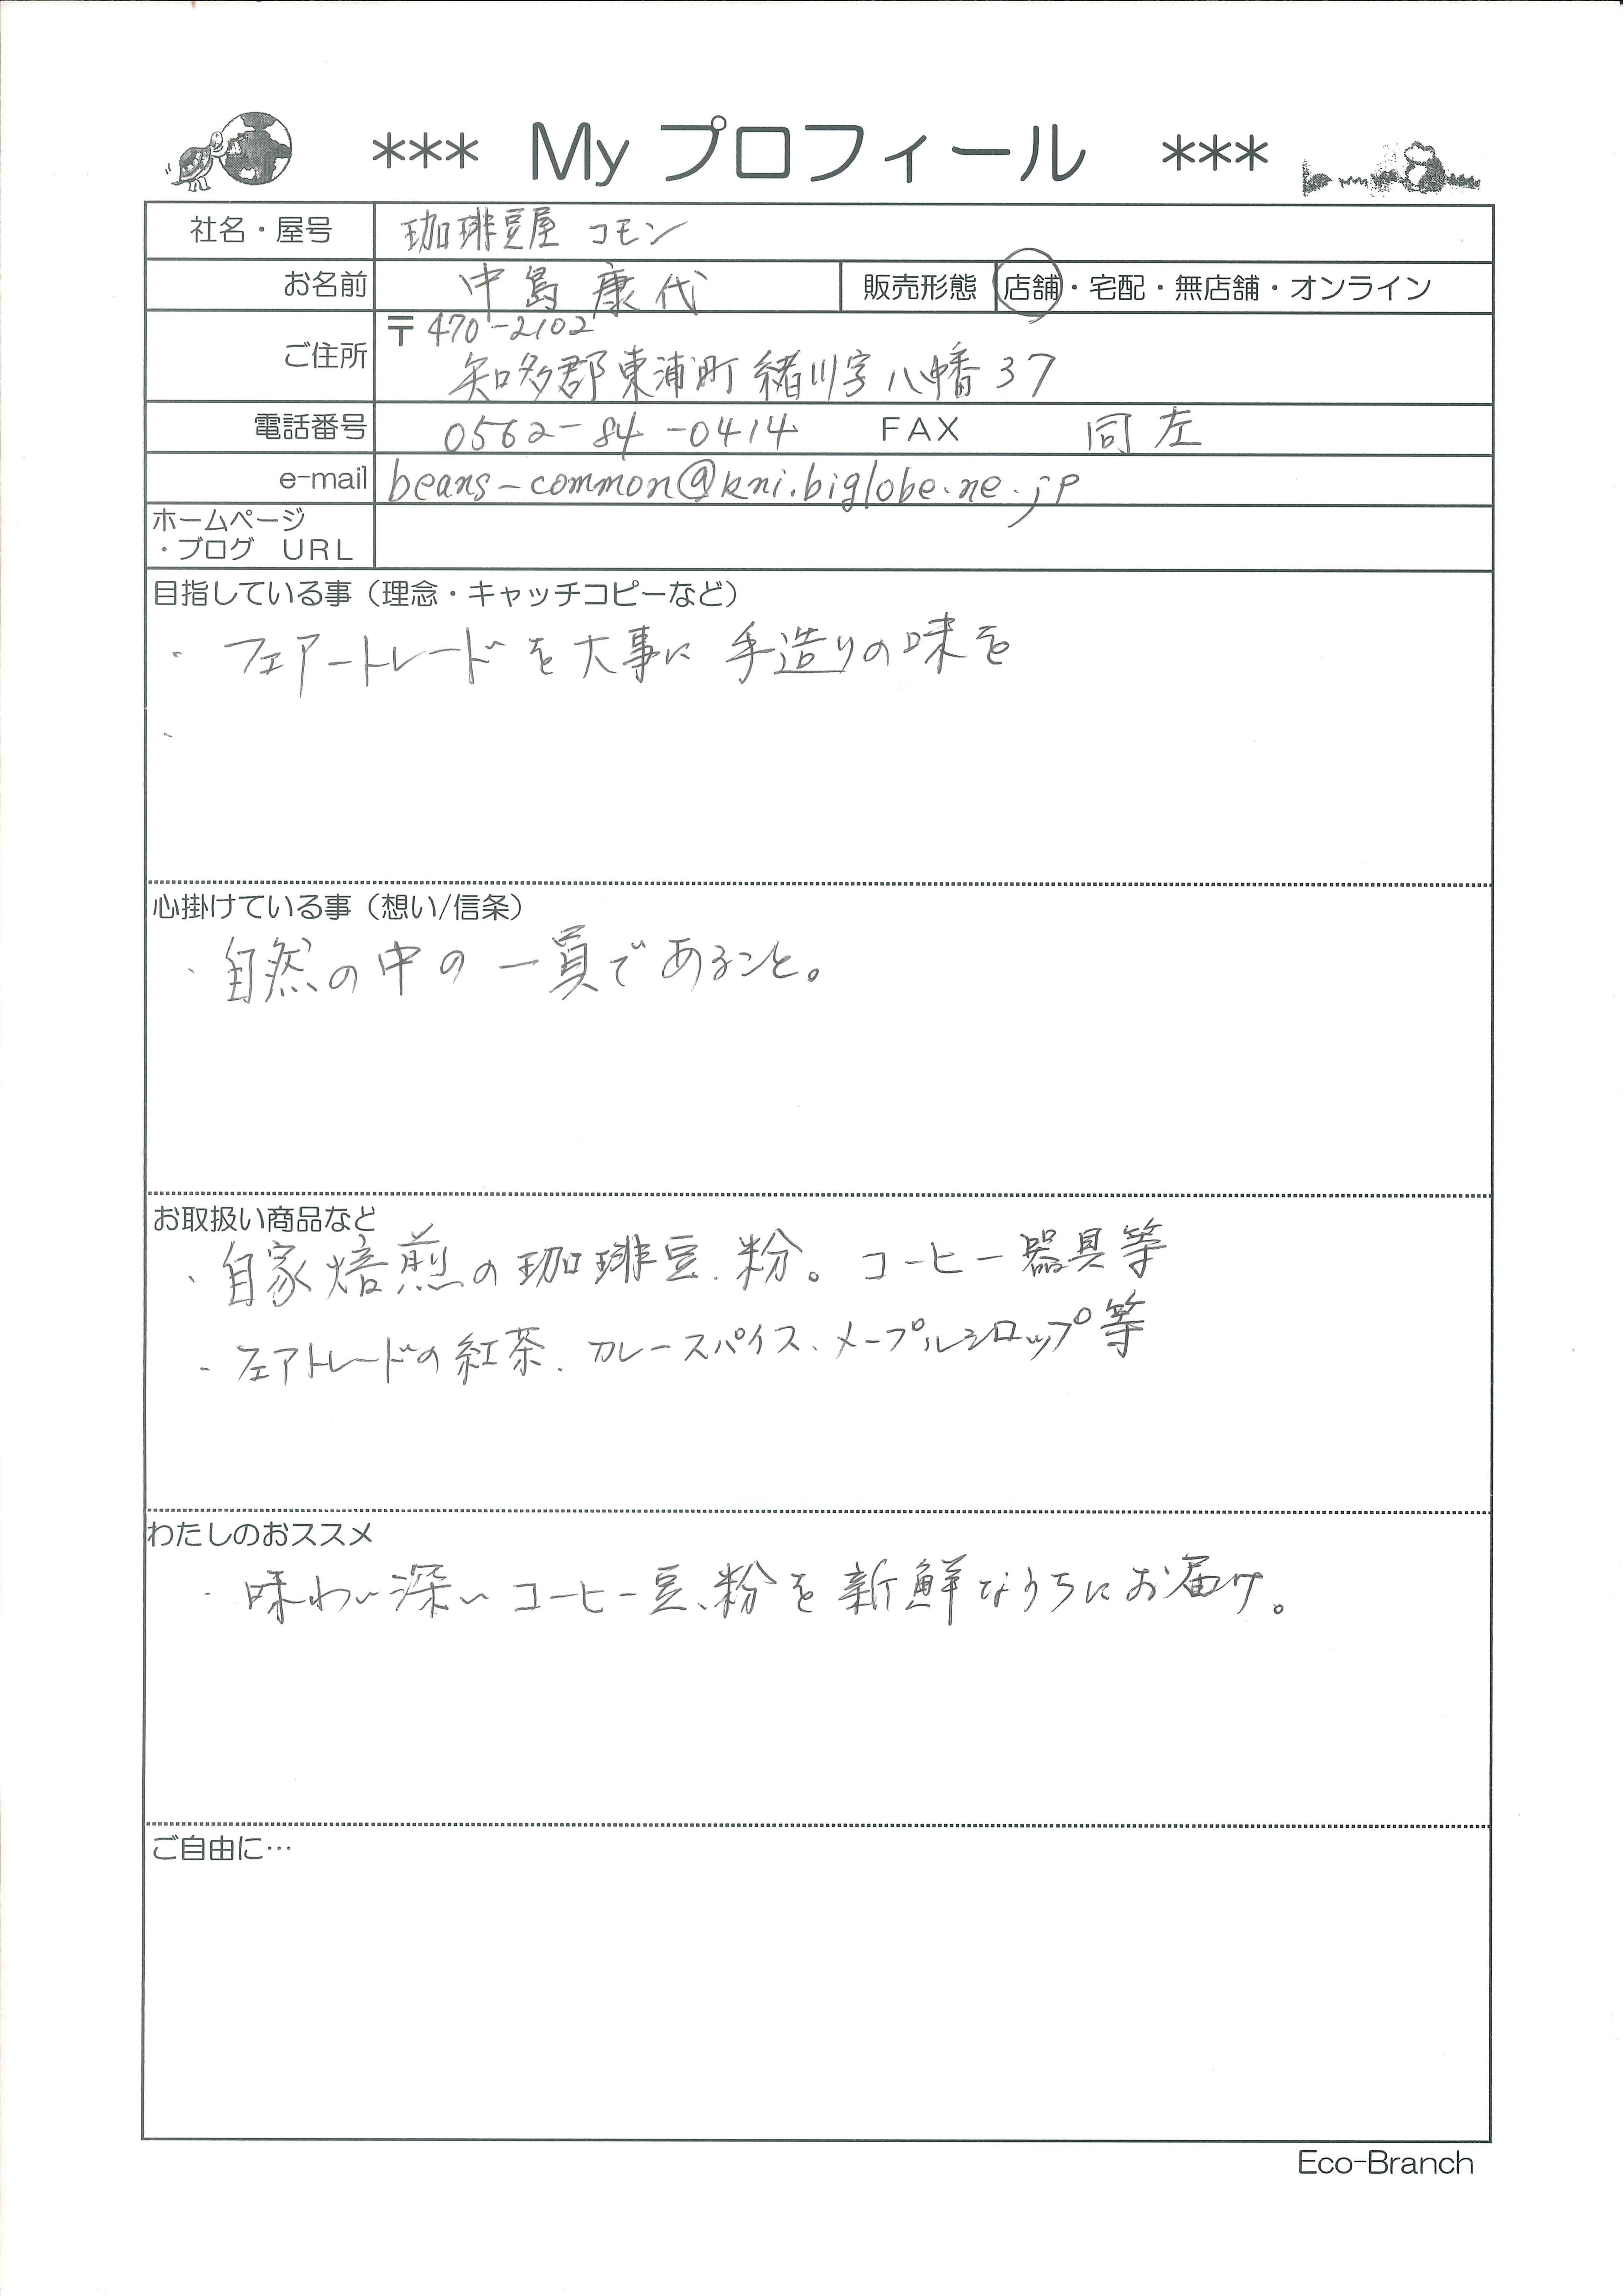 *** My プロフィール ***
社名・屋号 珈琲豆屋 コモン
お名前 中島 康代 販売形態 店舗・宅配・無店舗・オンライン
ご住所 〒470-2102
知多郡東浦町緒川字八幡37
電話番号 0562-84-0414 FAX 同左
e-mail beans-common@kni.biglobe.ne.jp
ホームページ
・ブログ URL
目指している事（理念・キャッチコピーなど）
・フェアートレードを大事に 手造りの味を
心掛けている事（想い/信条）
・自然の中の一員であること。
お取扱い商品など
・自家焙煎の珈琲豆、粉。コーヒー器具等
・フェアトレードの紅茶、カレースパイス、メープルシロップ等
わたしのおススメ
・味わい深いコーヒー豆、粉を新鮮なうちにお届け。
ご自由に…
Eco-Branch